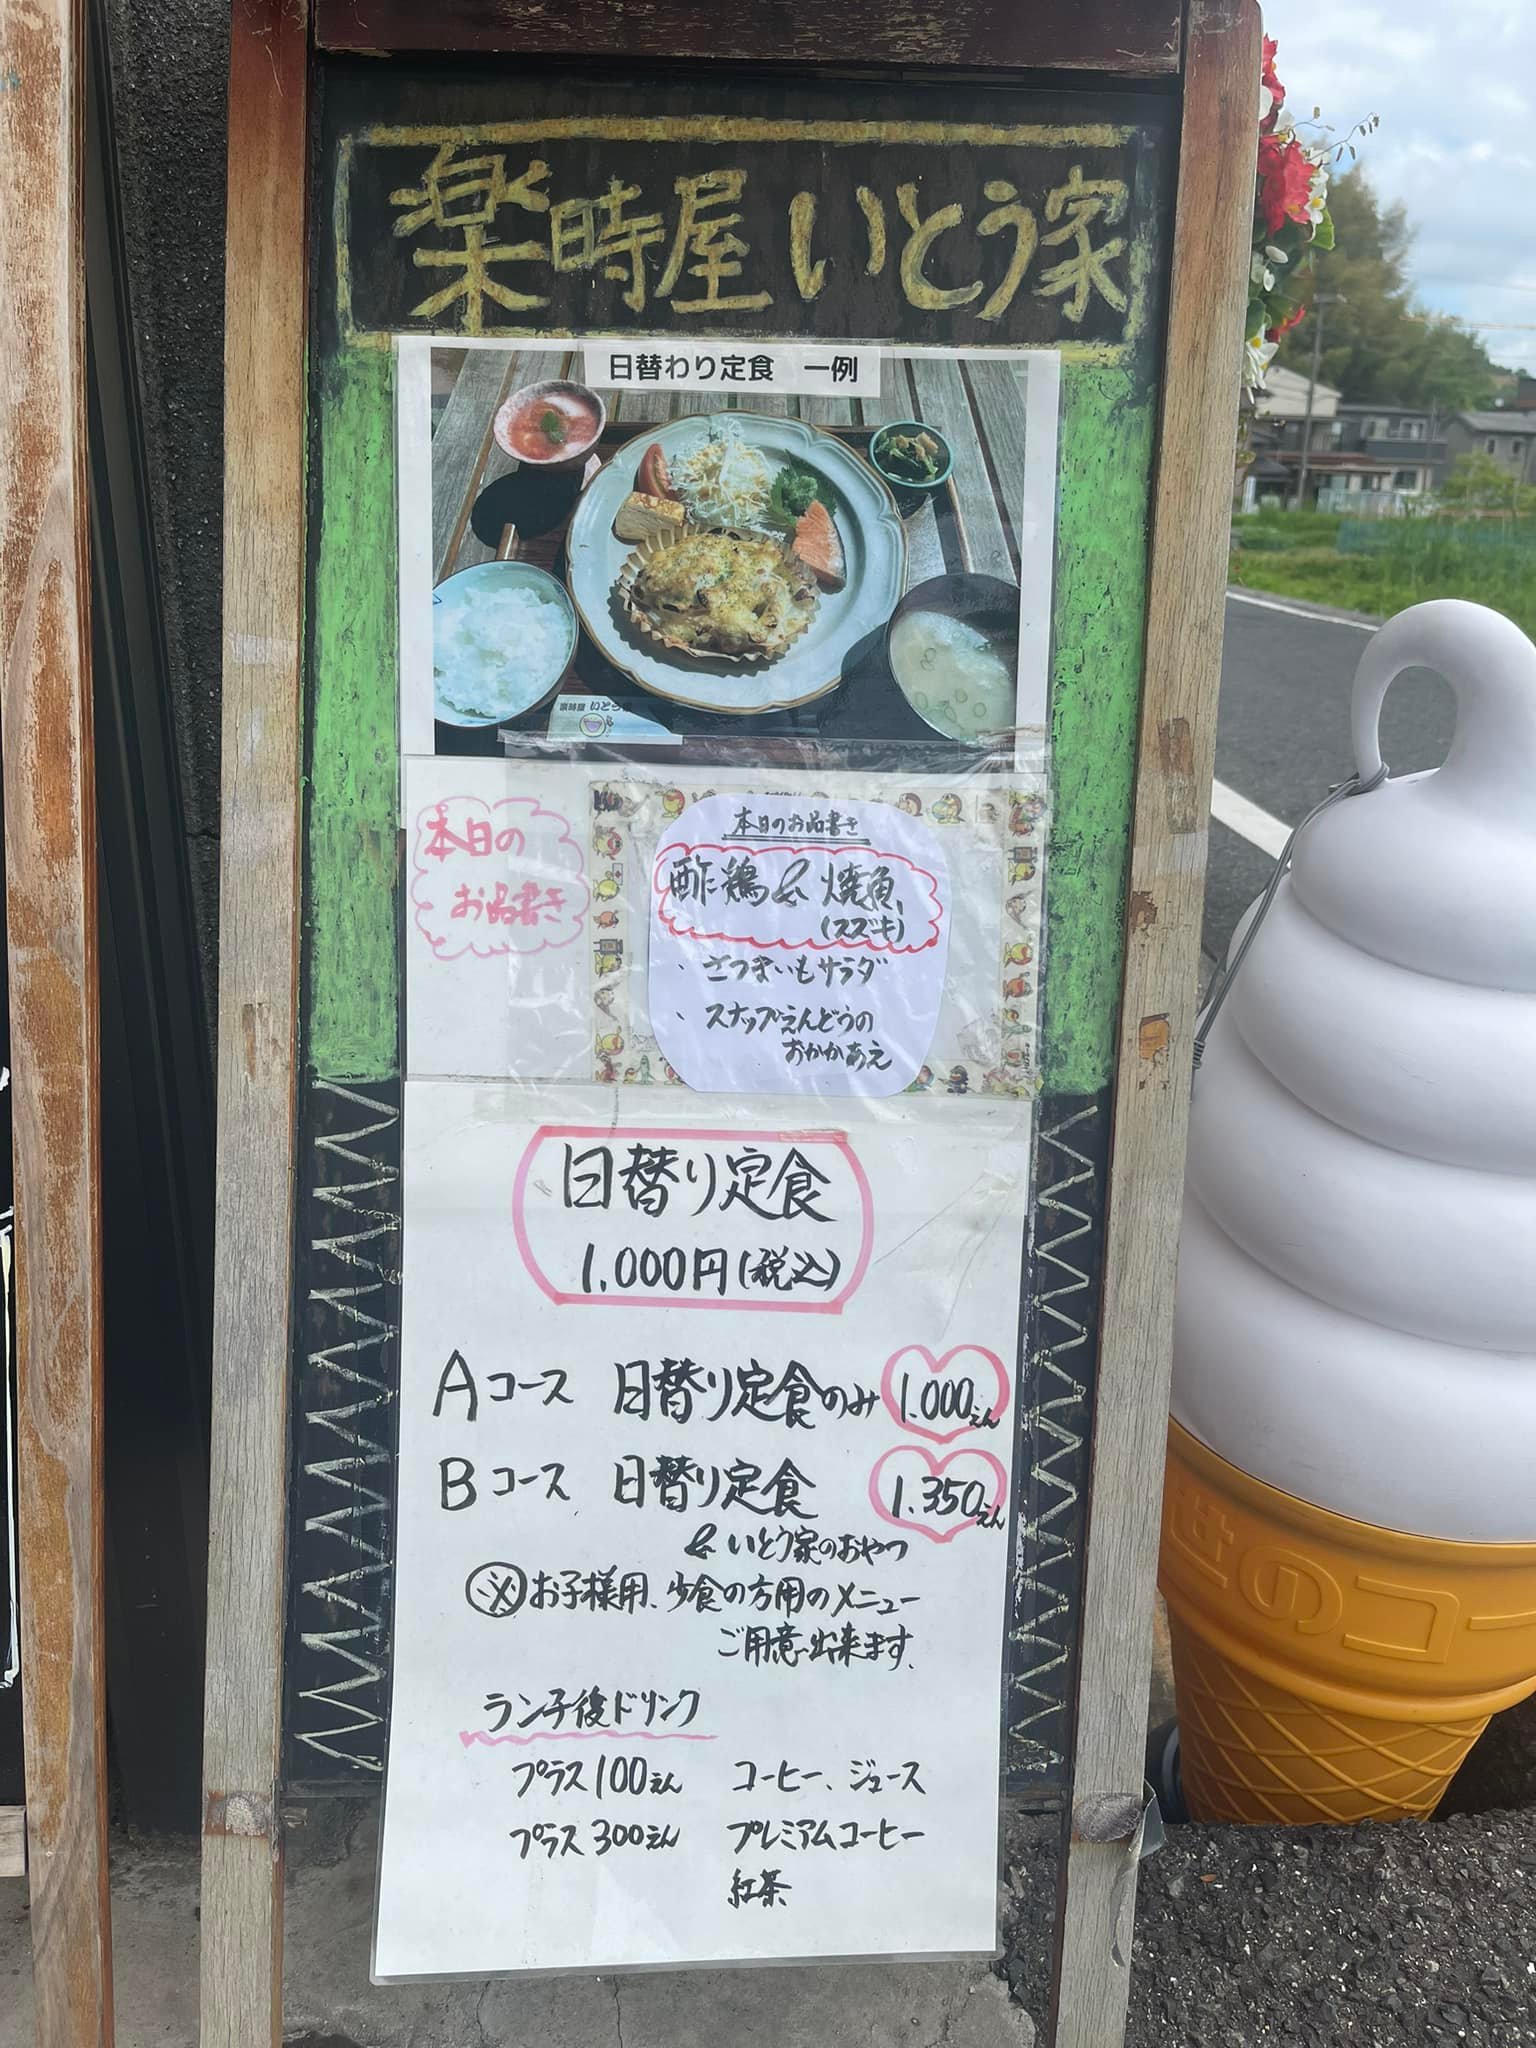 楽時屋 いとう家
日替わり定食 一例
楽時屋 いとう家
本日の
お品書き
本日のお品書き
酢鶏 & 焼魚
(スズキ)
、さつまいもサラダ
、スナップえんどうの
おかかあえ
日替り定食
1.000円(税込)
Aコース 日替り定食のみ 1.000えん
Bコース 日替り定食 1.350えん
& いとう家のおやつ
※お子様用、少食の方用のメニュー
ご用意出来ます。
ランチ後ドリンク
プラス100えん コーヒー、ジュース
プラス300えん プレミアムコーヒー
紅茶